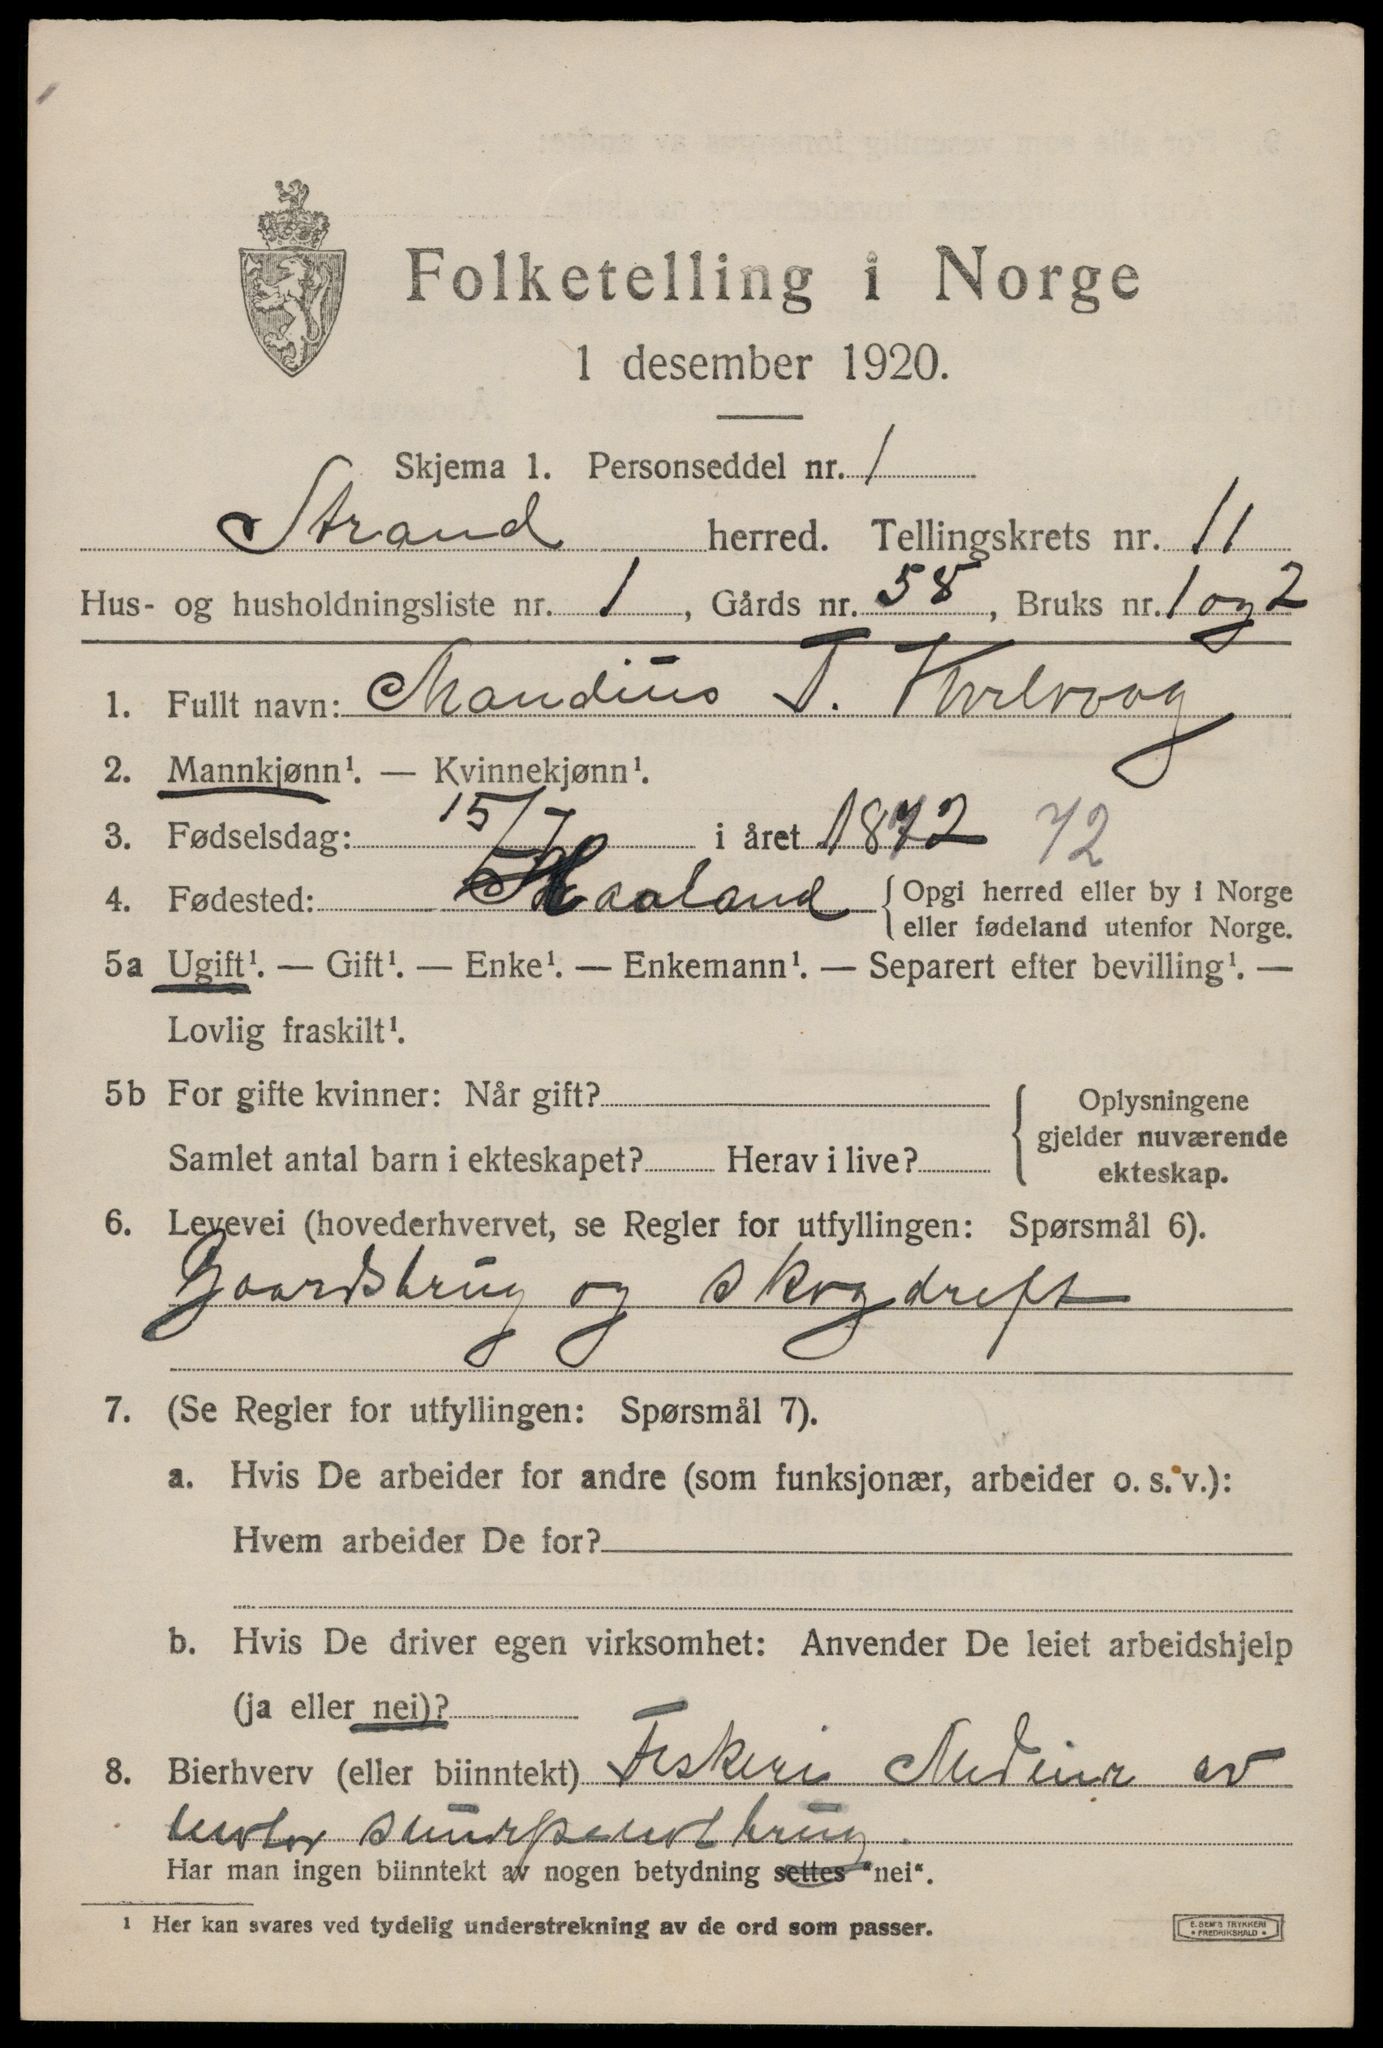 Folketelling i Norge
1 desember 1920.
Skjema 1. Personseddel nr. 1
Strand herred. Tellingskrets nr. 11
Hus- og husholdningsliste nr. 1, Gårds nr. 58, Bruks nr. 1 og 2
1. Fullt navn: Mandius T. Kvelvoog
2. Mannkjønn¹. — Kvinnekjønn¹.
3. Fødselsdag: 15/7 i året 1872 72
4. Fødested: Haaland { Opgi herred eller by i Norge
eller fødeland utenfor Norge.
5a Ugift¹. — Gift¹. — Enke¹. — Enkemann¹. — Separert efter bevilling¹. —
Lovlig fraskilt¹.
5b For gifte kvinner: Når gift? { Oplysningene
gjelder nuværende
Samlet antal barn i ekteskapet? Herav i live?
ekteskap.
6. Levevei (hovederhvervet, se Regler for utfyllingen: Spørsmål 6).
Gaardsbrug og skogdreft
7. (Se Regler for utfyllingen: Spørsmål 7).
a. Hvis De arbeider for andre (som funksjonær, arbeider o. s. v.):
Hvem arbeider De for?
b. Hvis De driver egen virksomhet: Anvender De leiet arbeidshjelp
(ja eller nei)?
8. Bierhverv (eller biinntekt) Feskeri Medeier av
snurpenotbrug.
Har man ingen biinntekt av nogen betydning settes "nei".
¹ Her kan svares ved tydelig understrekning av de ord som passer.
E. SEM'S TRYKKERI
FREDRIKSHALD